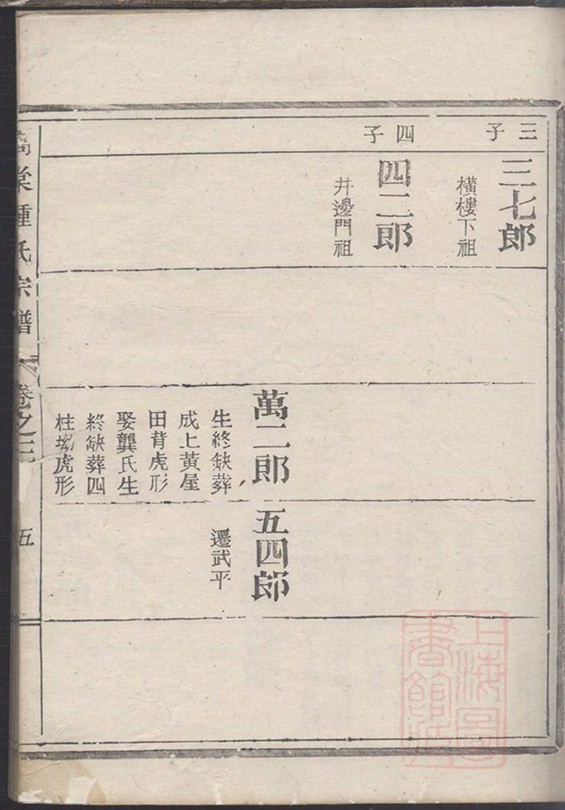 三子
三七郎
橫樓下祖
四子
四二郎
井邊門祖
萬二郎
生終缺葬
成上黃屋
田背虎形
娶龔氏生
終缺葬四
柱塅虎形
五四郎
遷武平
棠鍾氏宗譜
卷之二
五
上海圖
書館藏